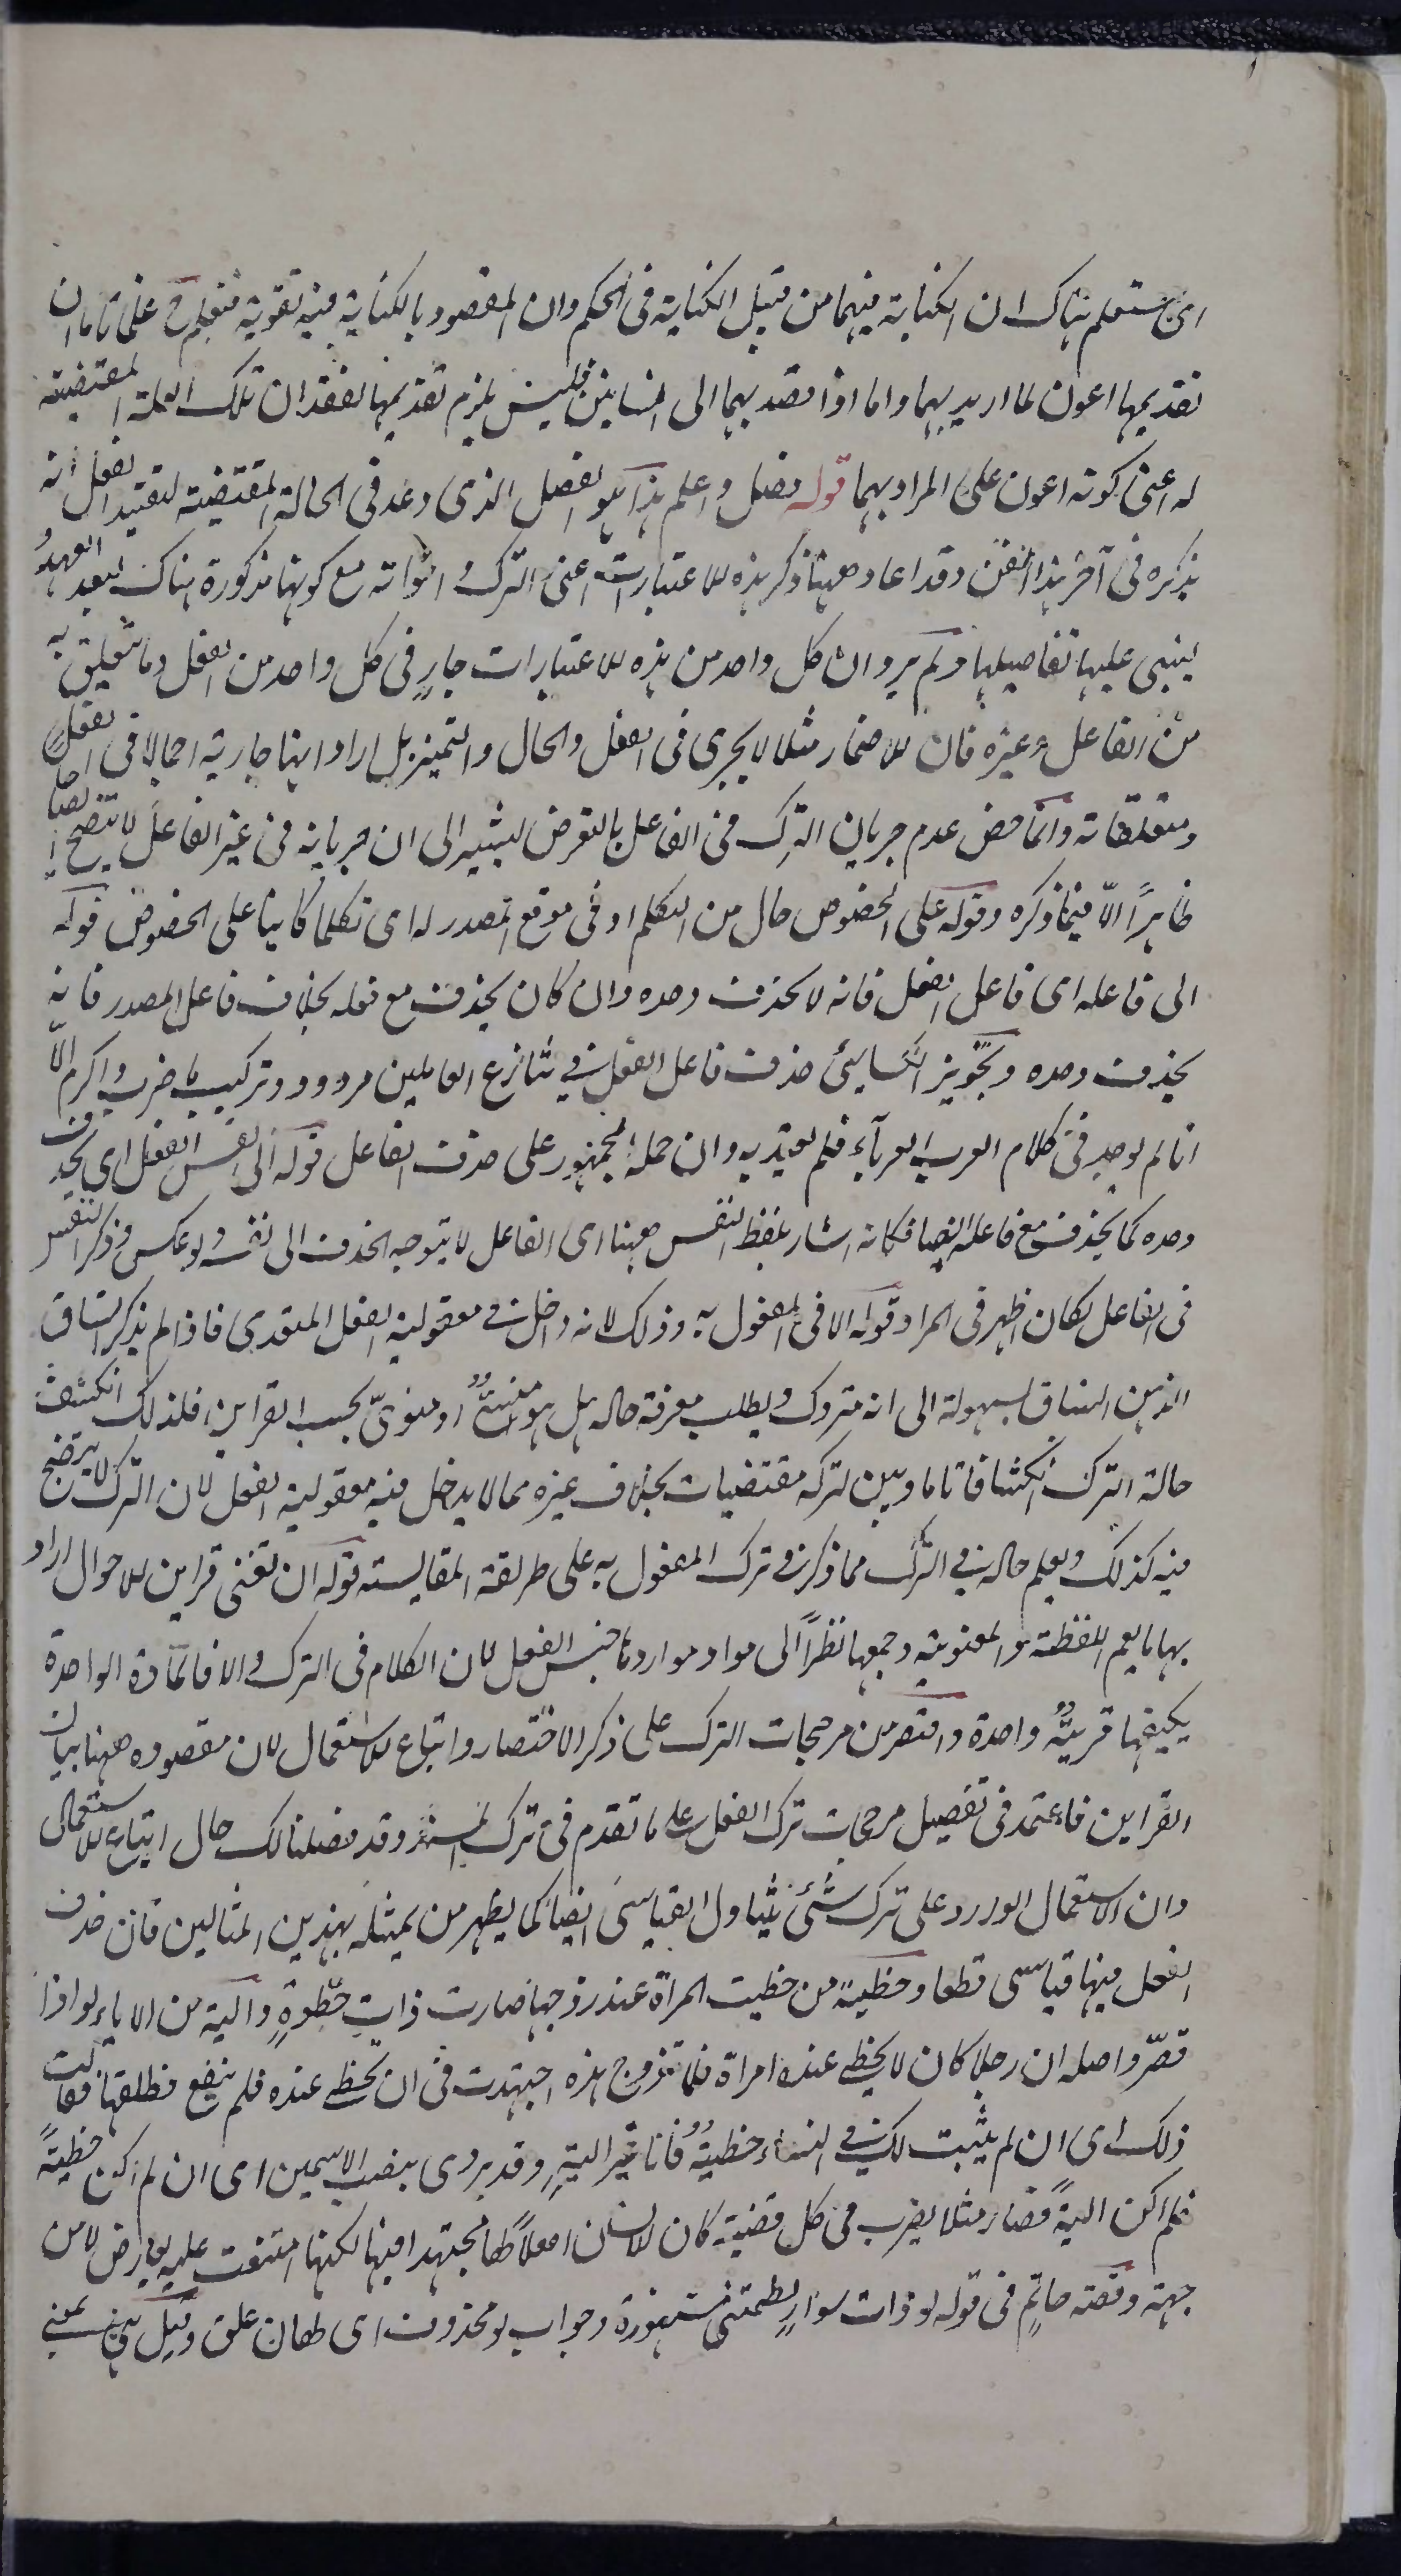 اى ستعلم هناك ان الكناية فيهما من قبيل الكناية فى الحكم وان المقصود بالكناية فيه تقويته فتعلم ح علما تاما ان
تقديمها اعون لما اريد بهما واما اذا قصد بهما الى انسانين فليس يلزم تقديمها لفقدان تلك العلة المقتضية
له اعنى كونه اعون على المراد بهما قوله فصل واعلم هذا هو الفصل الذى وعد فى الحالة المقتضية لتقييد الفعل انه
يذكره فى آخر هذا الفن وقد اعاد ههنا ذكر هذه الاعتبارات اعنى الترك واخواته مع كونها مذكورة هناك لبعد العهد
ليبنى عليها تفاصيلها ولم يرد ان كل واحد من هذه الاعتبارات جارٍ فى كل واحد من الفعل وما يتعلق به
من الفاعل وغيره فان الاضمار مثلا لا يجرى فى الفعل والحال والتميز بل اراد انها جارية اجمالا فى الفعل
ومتعلقاته وانما خص عدم جريان الترك فى الفاعل بالتعرض ليشير الى ان جريانه فى غير الفاعل لا يتضح ايضاحا
ظاهرًا الّا فيما ذكره وقوله على الخصوص حال من التكلم او فى موقع المصدر له اى تكلما كاينا على الخصوص قوله
الى فاعله اى فاعل الفعل فانه لا يحذف وحده وان كان يحذف مع فعله بخلاف فاعل المصدر فانه
يحذف وحده وتجويز الكسائى حذف فاعل الفعل فى تنازع العاملين مردود وتركيب ما ضرب واكرم الّا
انا لم يوجد فى كلام العرب العرباء فلم يعتد به وان حمله الجمهور على حذف الفاعل قوله الى نفس الفعل اى يحذف
وحده كما يحذف مع فاعله ايضا فكانه اشار بلفظ النفس ههنا اى الفاعل لا يتوجه الحذف الى نفسه ولو عكس وذكر النفس
فى الفاعل لكان اظهر فى المراد قوله الا فى المفعول به وذلك لانه داخل فى معقولية الفعل المتعدى فاذا لم يذكر انساق
الذهن انسياق لسهولة الى انه متروك ويطلب معرفة حاله هل هو منسىٌّ او منوىّ بحسب القراين فلذلك انكشفت
حالة الترك انكشافا تاما وبين لتركه مقتضيات بخلاف غيره مما لا يدخل فيه معقولية الفعل لان الترك لا يتضح
فيه كذلك ويعلم حاله فى الترك مما ذكر فى ترك المفعول به على طريقة المقايسة قوله ان تغنى قراين الاحوال اراد
بها ما يعم اللفظية والمعنوية وجمعها نظرًا الى مواد موارد ما جنس الفعل لان الكلام فى الترك والا فالمادة الواحدة
يكفيها قرينةٌ واحدة واقتصر من مرجحات الترك على ذكر الاختصار واتباع الاستعمال لان مقصوده ههنا بيان
القراين فاعتمد فى تفصيل مرجحات ترك الفعل على ما تقدم فى ترك المسند وقد فصلنا لك حال اتباع الاستعمال
وان الاستعمال الوارد على ترك شئ يتناول القياسى ايضا كما يظهر من تمثيله بهذين المثالين فان حذف
الفعل فيها قياسى قطعا وحظيّة من حظيت المراة عند زوجها صارت ذات حظوةٍ والية من الا يالو اذا
قصّر واصله ان رجلا كان لا يحظى عنده امراة فلما تزوج هذه اجتهدت فى ان تحظى عنده فلم ينفع فطلقها فقالت
ذلك اى ان لم يثبت لك فى النساء حظيةٌ فانا غير اليةٍ وقد يروى بنصب الاسمين اى ان لم اكن حظيةً
فلم اكن اليةً فصار مثلا يضرب فى كل قضية كان الانسان اهلا لها مجتهدا فيها لكنها امتنعت عليه لعارض لا من
جهته وقصة حاتمٍ فى قوله لو ذات سوارٍ لطمتنى مشهورة وجواب لو محذوف اى لهان على وقيل هى بمعنى